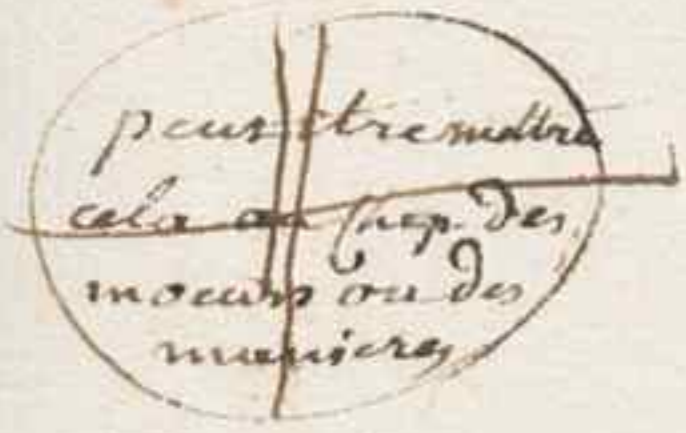 peut etre mettre
cela au Chap. des
moeurs ou des
manieres